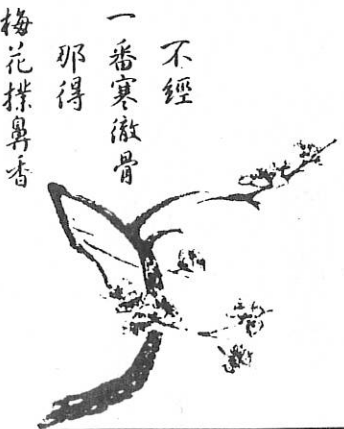 不經
一番寒徹骨
那得
梅花撲鼻香